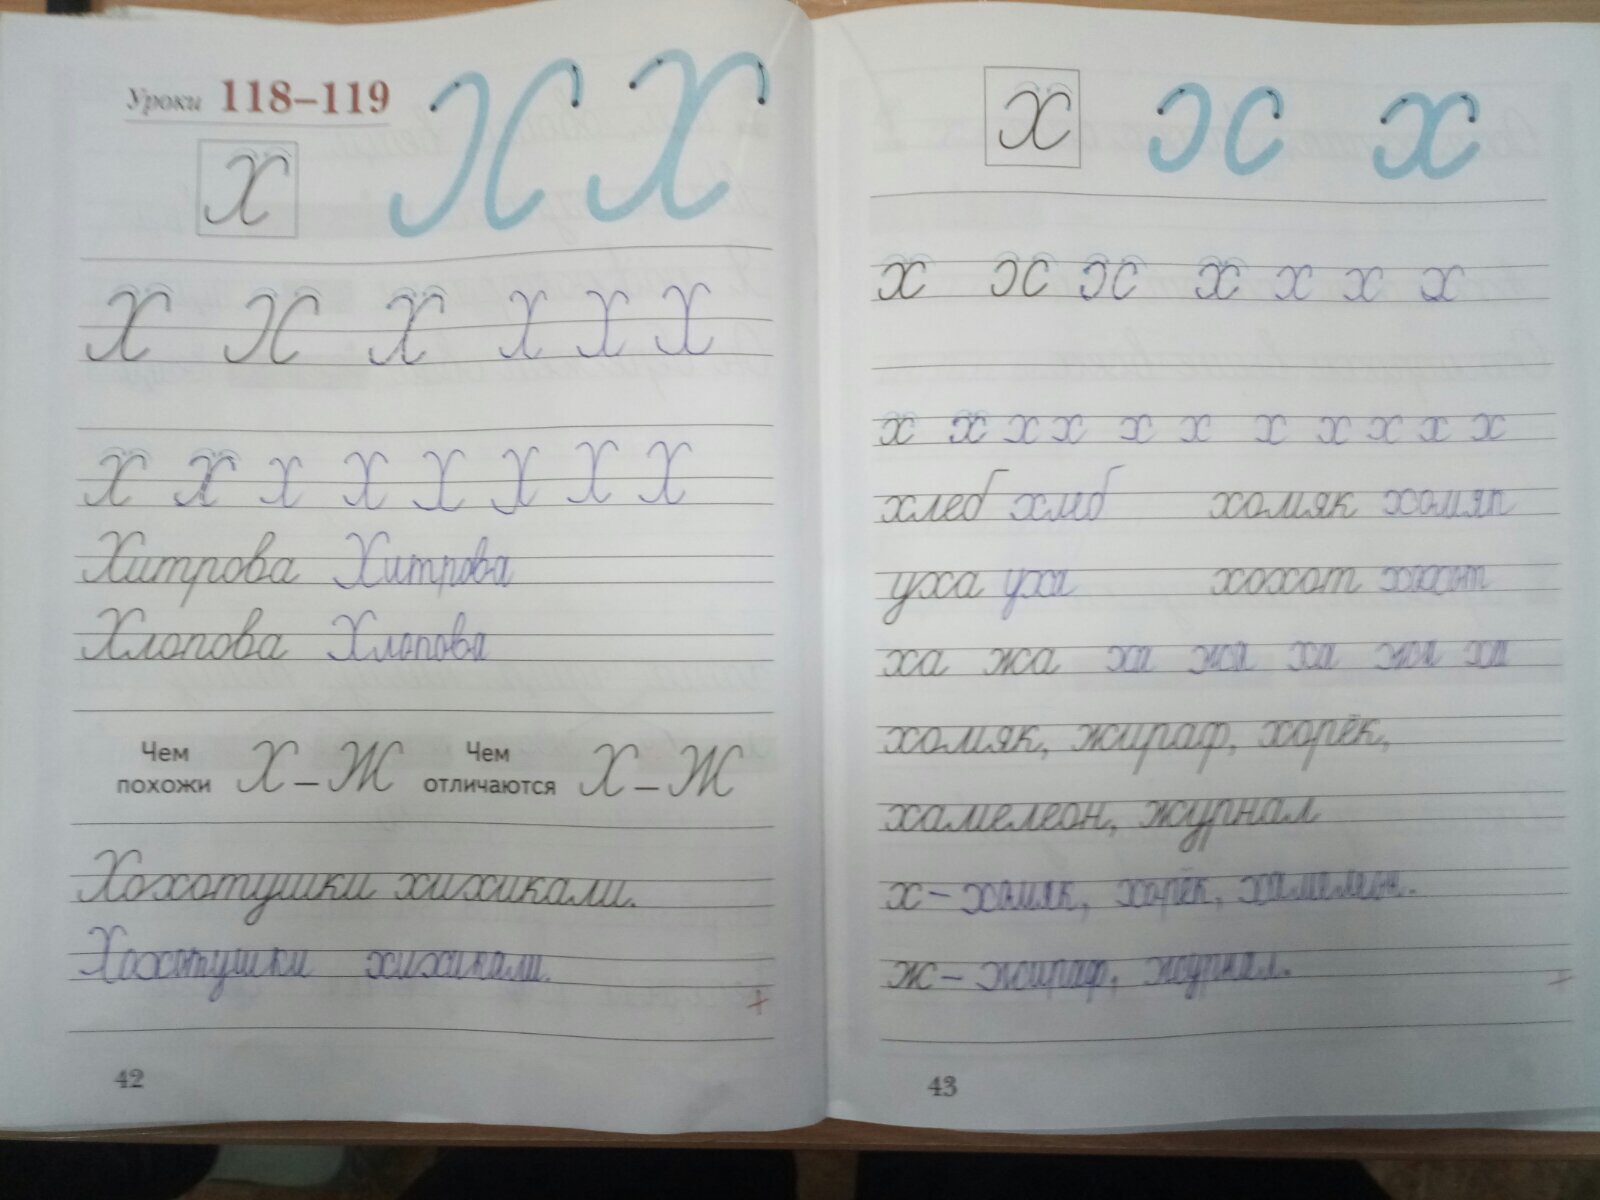 Уроки 118–119
Х Х Х
Х Х Х Х Х Х
Х Х Х Х Х Х Х Х
Хитрова Хитрова
Хлопова Хлопова
Чем похожи Х – Ж Чем отличаются Х – Ж
Хохотушки хихикали.
Хохотушки хихикали.
42
х х х
х х х х х х х
х х х х х х х х х х х
хлеб хлеб хомяк хомяк
уха уха хохот хохот
ха жа ха жа ха жа ха
хомяк, жираф, хорёк,
хамелеон, журнал
х – хомяк, хорёк, хамелеон.
ж – жираф, журнал.
43